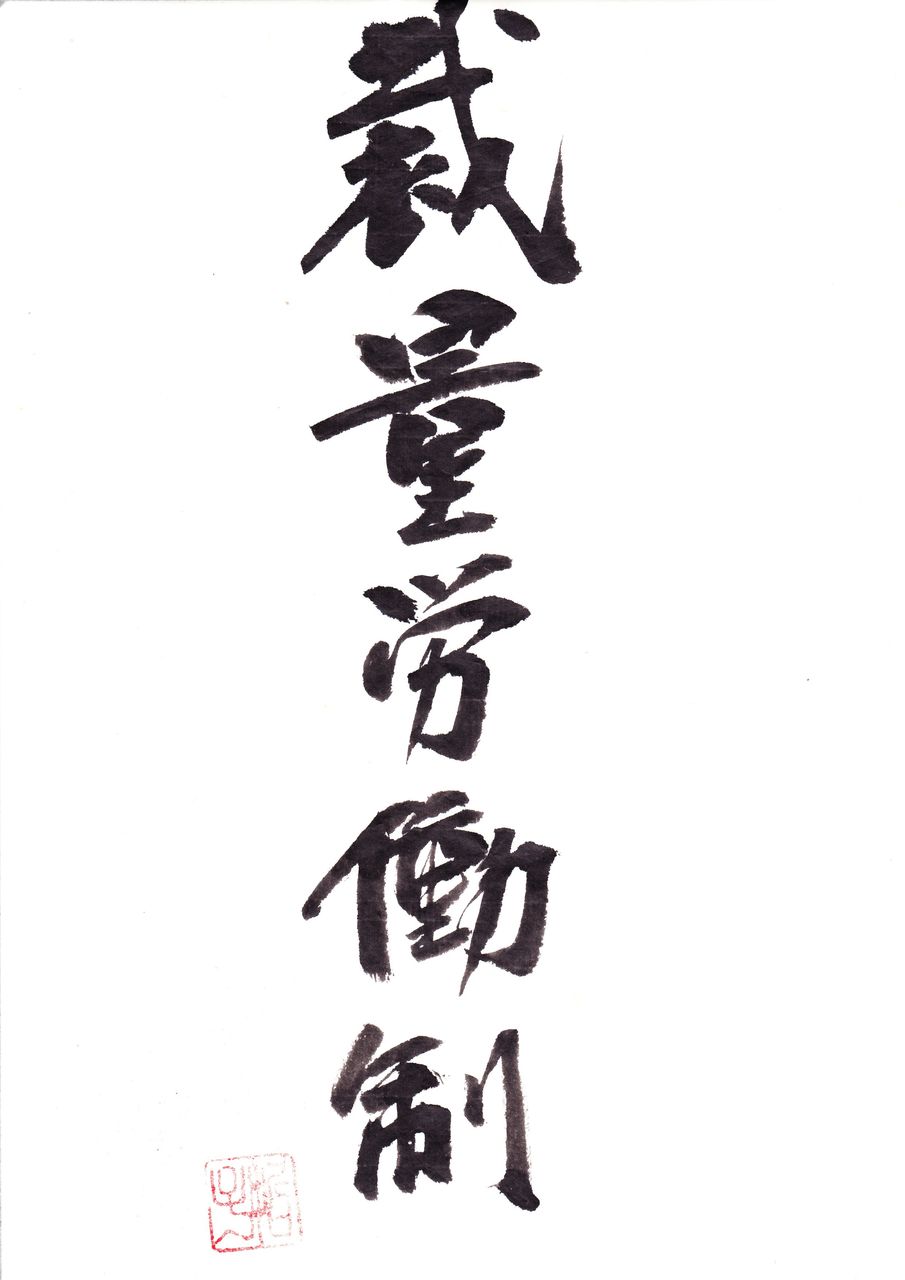 裁量労働制